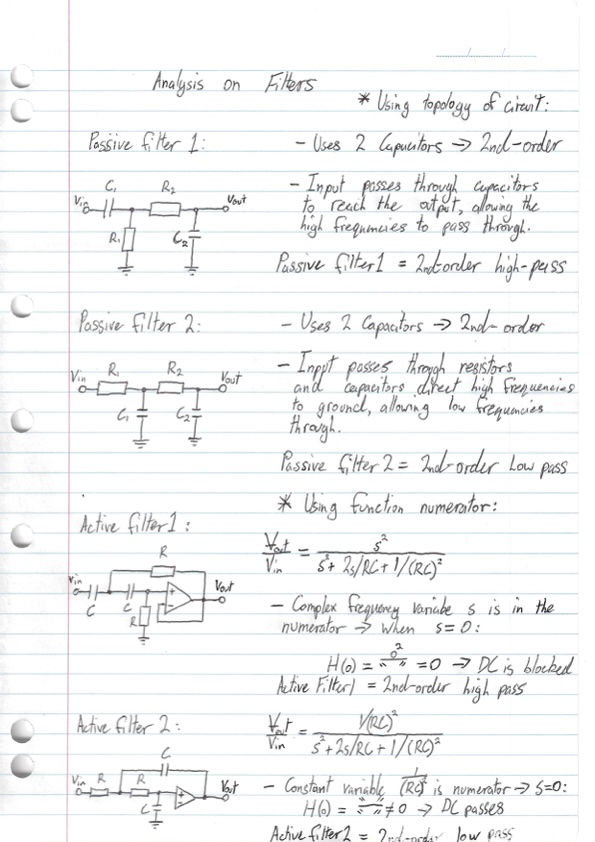 Analysis on Filters
* Using topology of circuit:
Passive filter 1:
- Uses 2 Capacitors → 2nd-order
C₁ R₂
Vin Vout
R₁ C₂
- Input passes through capacitors
to reach the output, allowing the
high frequencies to pass through.
Passive filter 1 = 2nd-order high-pass
Passive filter 2:
- Uses 2 Capacitors → 2nd-order
Vin R₁ R₂ Vout
C₁ C₂
- Input passes through resistors
and capacitors direct high frequencies
to ground, allowing low frequencies
through.
Passive filter 2 = 2nd-order Low pass
* Using function numerator:
Active filter 1:
R
Vin Vout
C C
R
Vout/Vin = s²/(s² + 2s/RC + 1/(RC)²)
- Complex frequency variabe s is in the
numerator → when s=0:
H(0) = 0²/" " = 0 → DC is blocked
Active Filter 1 = 2nd-order high pass
Active filter 2:
C
Vin R R Vout
C
Vout/Vin = 1/(RC)²/(s² + 2s/RC + 1/(RC)²)
- Constant variable 1/(RC)² is numerator → s=0:
H(0) = " "/" " ≠ 0 → DC passes
Active filter 2 = 2nd-order low pass